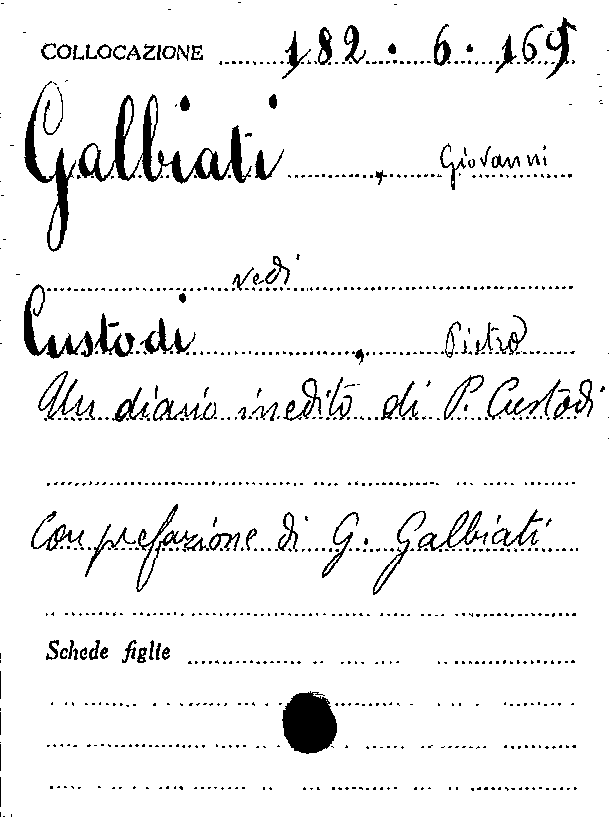 COLLOCAZIONE 182. 6. 169
Galbiati, Giovanni
vedi
Custodi, Pietro
Un diario inedito di P. Custodi
Con prefazione di G. Galbiati
Schede figlie